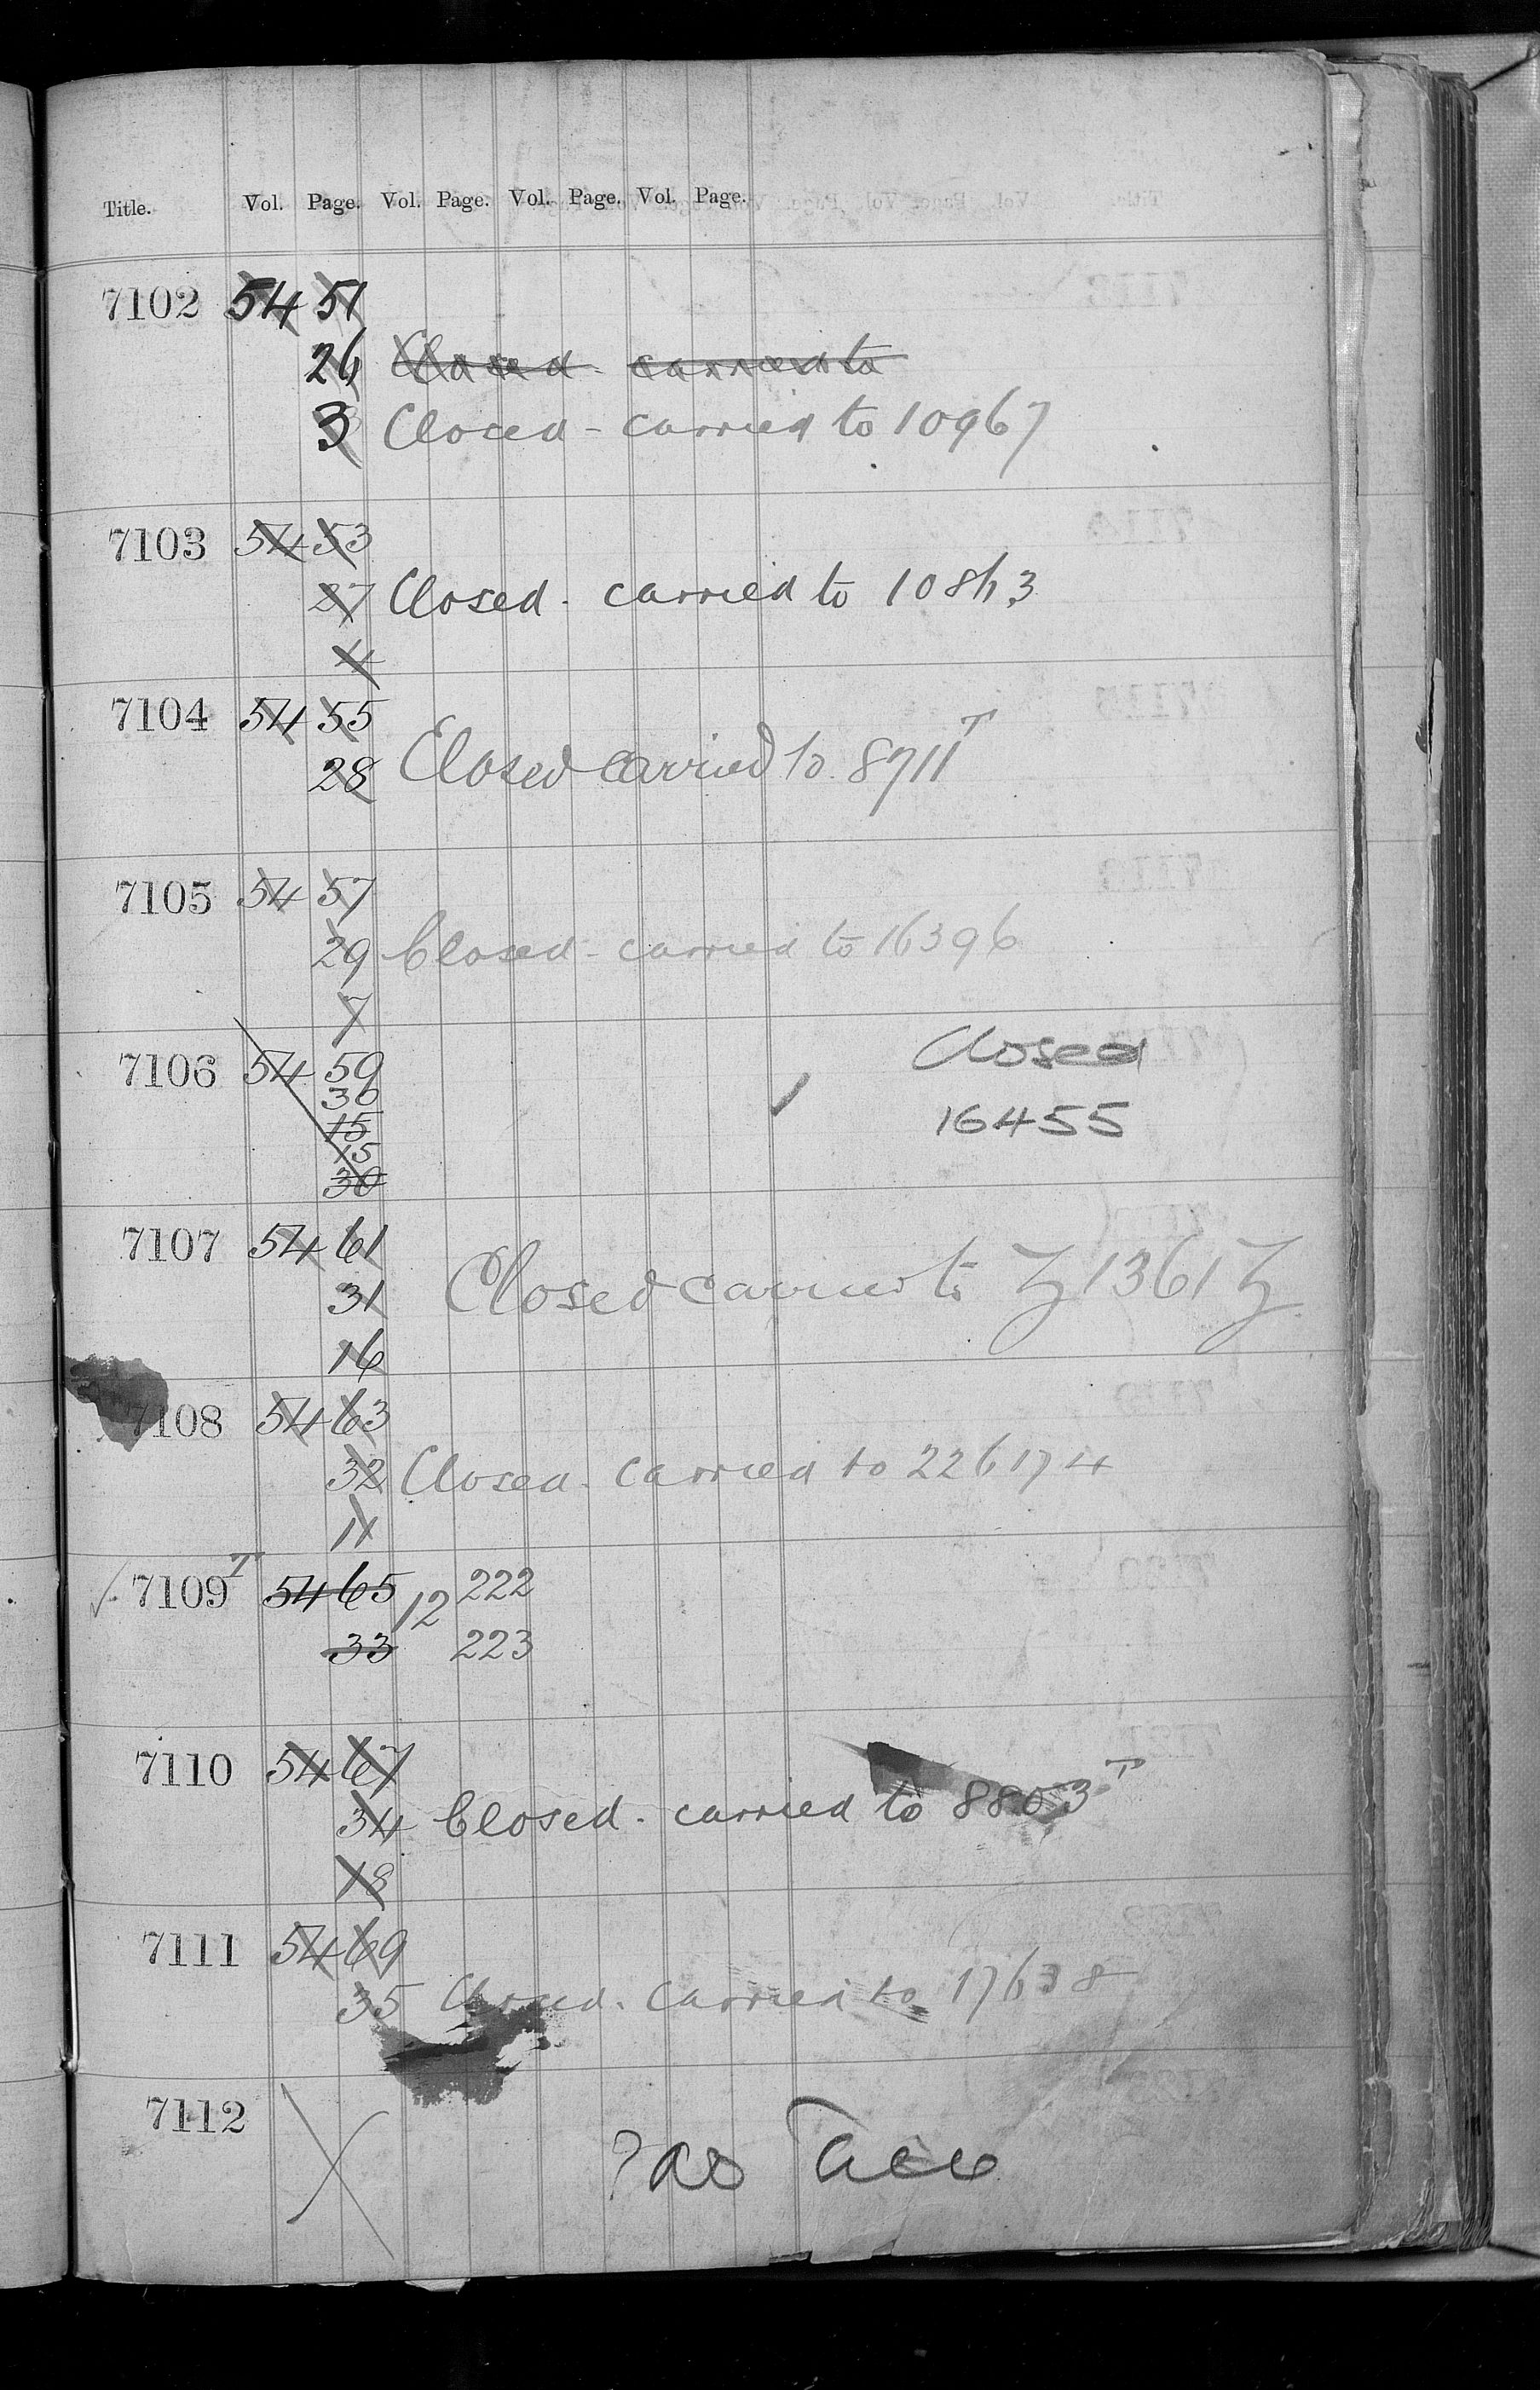 Title. Vol. Page. Vol. Page. Vol. Page. Vol. Page.
7102 54 51
26 Closed - carried to
3 Closed - carried to 10967
7103 54 53
27 Closed - carried to 10863
4
7104 54 55
28 Closed carried to 8711 T
7105 54 57
29 Closed - carried to 16396
7
7106 54 59 Closed
30
15 16455
15
30
7107 54 61
31 Closed carried to Z 1361 Z
16
7108 54 63
32 Closed - carried to 226174
11
7109 T 54 65 12 222
33 223
7110 54 67
34 Closed - carried to 8803 T
18
7111 54 69
35 Closed - carried to 17638
7112